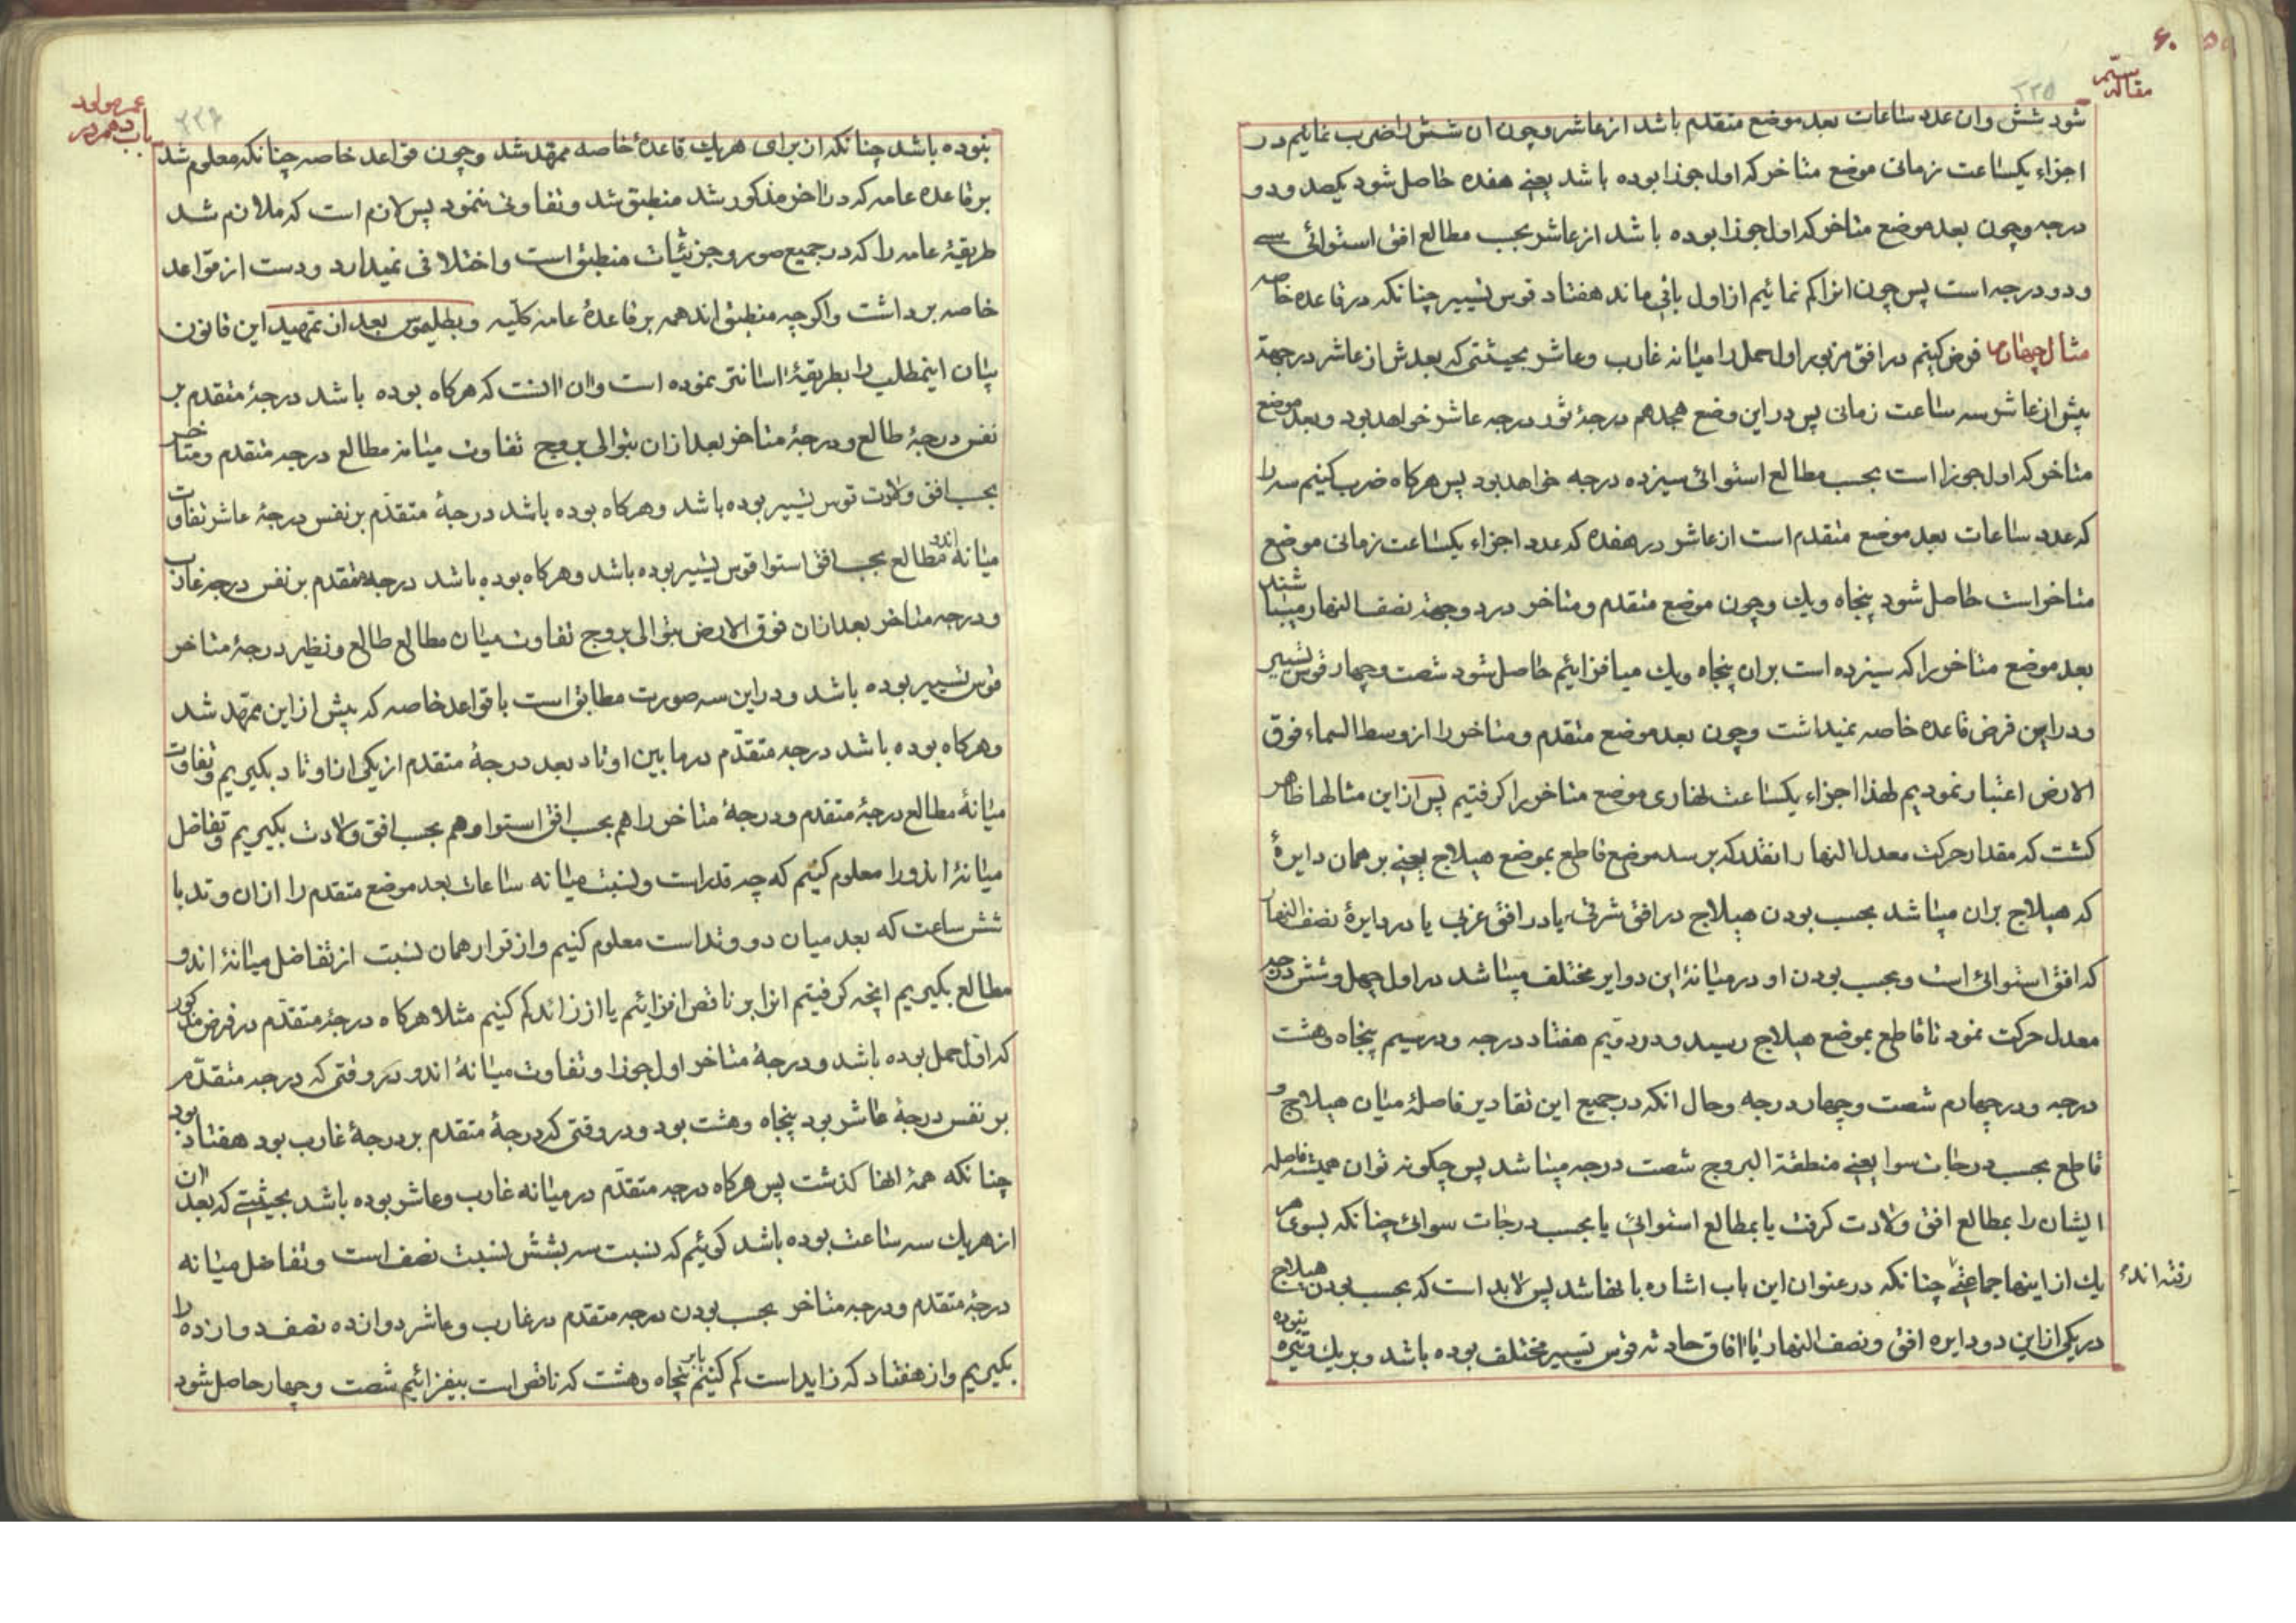 ۶۰
مقاله سیّم
۲۲۵
شود شش و ان عدد ساعات بعد موضع متقدم باشد از عاشر و چون ان شش را ضرب نمایم در
اجزاء یکساعت زمانی موضع متاخر که اول جوزا بوده باشد یعنی هفده حاصل شود یکصد و دو
درجه و چون بعد موضع متاخر که اول جوزا بوده باشد از عاشر بحسب مطالع افق استوائی سے
و دو درجه است پس چون انرا کم نمائیم از اول باقی ماند هفتاد قوس تسییر چنانکه در قاعده خاصه
مثال چهارم فرض کنیم در افق مزبور اول حمل را میانه غارب و عاشر بحیثیتی که بعدش از عاشر در جهة
پیش از عاشر سه ساعت زمانی پس در این وضع هجدهم درجۀ ثور درجه عاشر خواهد بود و بعد موضع
متاخر که اول جوزا است بحسب مطالع استوائی سیزده درجه خواهد بود پس هرکاه ضرب کنیم سه را
که عدد ساعات بعد موضع متقدم است از عاشر در هفده که عدد اجزاء یکساعت زمانی موضع
متاخر است حاصل شود پنجاه و یك و چون موضع متقدم و متاخر در دو جهة نصف النهار میباشند
بعد موضع متاخر را که سیزده است بران پنجاه و یك میافزائیم حاصل شود شصت و چهار قوس تسییر
و در این فرض قاعده خاصه نمیداشت و چون بعد موضع متقدم و متاخر را از وسط السماء فوق
الارض اعتبار نمودیم لهذا اجزاء یکساعت نهاری موضع متاخر را کرفتیم پس از این مثالها ظاهر
کشت که مقدار حرکت معدل النهار انقدر که برسد موضع قاطع بموضع هیلاج یعنی بر همان دایرۀ
که هیلاج بران میباشد بحسب بودن هیلاج در افق شرقی یا در افق غربی یا در دایرۀ نصف النهار
که افق استوائی است و بحسب بودن او در میانۀ این دوایر مختلف میباشد در اول چهل و شش درجه
معدل حرکت نمود تا قاطع بموضع هیلاج رسید و در دویم هفتاد درجه و در سیم پنجاه و هشت
درجه و در چهارم شصت و چهار درجه و حال انکه در جمیع این تقادیر فاصلۀ میان هیلاج و
قاطع بحسب درجات سوا یعنی منطقة البروج شصت درجه میباشد پس چکونه توان همیشه فاصله
ایشان را بمطالع افق ولادت کرفت یا بمطالع استوائی یا بحسب درجات سوائی چنانکه بسوی هر
یك از اینها جماعتی رفته اند چنانکه در عنوان این باب اشاره بانها شد پس لابد است که بحسب بودن هیلاج
در یکی از این دو دایره افق و نصف النهار یا افاق حادثه قوس تسییر مختلف بوده باشد و بر یك وتیره نبوده
باب دهم در
عمر مولود
۲۲۶
نبوده باشد چنانکه ان برای هر یك قاعدۀ خاصه ممهّد شد و چون قواعد خاصه چنانکه معلوم شد
بر قاعده عامه که در اخر مذکور شد منطبق شد و تفاوتی ننمود پس لازم است که ملازم شد
طریقۀ عامه را که در جمیع صور و جزئیات منطبق است و اختلافی نمیدارد و دست از قواعد
خاصه برداشت و اکرچه منطبق اند همه بر قاعدۀ عامه کلّیه و بطلیموس بعد از تمهید این قانون
بیان اینمطلب را بطریقۀ اسانتر نموده است و ان انست که هرکاه بوده باشد درجۀ متقدم بر
نفس درجۀ طالع و درجۀ متاخر بعد از ان بتوالی بروج تفاوت میانه مطالع درجه متقدم و متاخر
بحسب افق ولادت قوس تسییر بوده باشد و هرکاه بوده باشد درجۀ متقدّم بر نفس درجۀ عاشر تفاوت
میانه مطالع اندو بحسب افق استوا قوس تسییر بوده باشد و هرکاه بوده باشد درجۀ متقدم بر نفس درجه غارب
و درجه متاخر بعد از ان فوق الارض بتوالی بروج تفاوت میان مطالع طالع و نظیر درجۀ متاخر
قوس تسییر بوده باشد و در این سه صورت مطابق است با قواعد خاصه که پیش از این ممهّد شد
و هرکاه بوده باشد درجه متقدّم در مابین اوتاد بعد درجۀ متقدم از یکی از اوتاد بکیریم و تفاوت
میانۀ مطالع درجۀ متقدم و درجۀ متاخر را هم بحسب افق استوا و هم بحسب افق ولادت بکیریم و تفاضل
میانۀ اندو را معلوم کنیم که چه قدر است و نسبت میانه ساعات بعد موضع متقدم را از ان وتد با
شش ساعت که بعد میان دو وتد است معلوم کنیم و از قرار همان نسبت از تفاضل میانۀ اندو
مطالع بکیریم انچه کرفتیم انرا بر ناقص افزائیم یا از زائد کم کنیم مثلا هرکاه درجۀ متقدّم در فرض مذکور
که اوّل حمل بوده باشد و درجۀ متاخر اول جوزا و تفاوت میانۀ اندو در وقتی که درجه متقدّم
بر نفس درجۀ عاشر بود پنجاه و هشت بود و در وقتی که درجۀ متقدم بر درجۀ غارب بود هفتاد بود
چنانکه همۀ انها کذشت پس هرکاه درجه متقدّم در میانه غارب و عاشر بوده باشد بحیثیتی که بعد ان
از هر یك سه ساعت بوده باشد کوئیم که نسبت سه بشش نسبت نصف است و تفاضل میانه
درجۀ متقدم و درجه متاخر بحسب بودن درجه متقدم در غارب و عاشر دوازده نصف دوازده را
بکیریم و از هفتاد که زاید است کم کنیم یا بر پنجاه و هشت که ناقص است بیفزائیم شصت و چهار حاصل شود